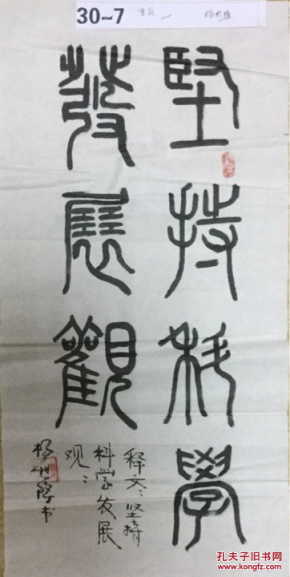 30-7
堅持科學
發展觀
释文：坚持
科学发展
观：
书
孔夫子旧书网
www.kongfz.com